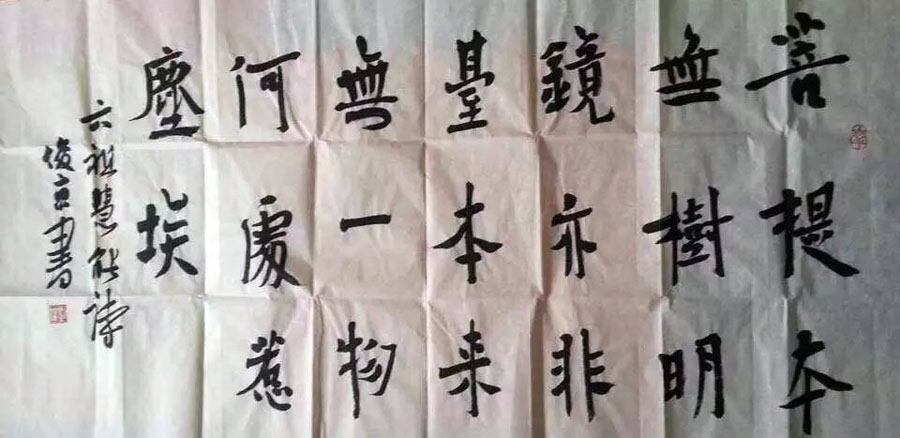 菩提本
無樹明
鏡亦非
臺本来
無一物
何處惹
塵埃
六祖慧能詩
俊書